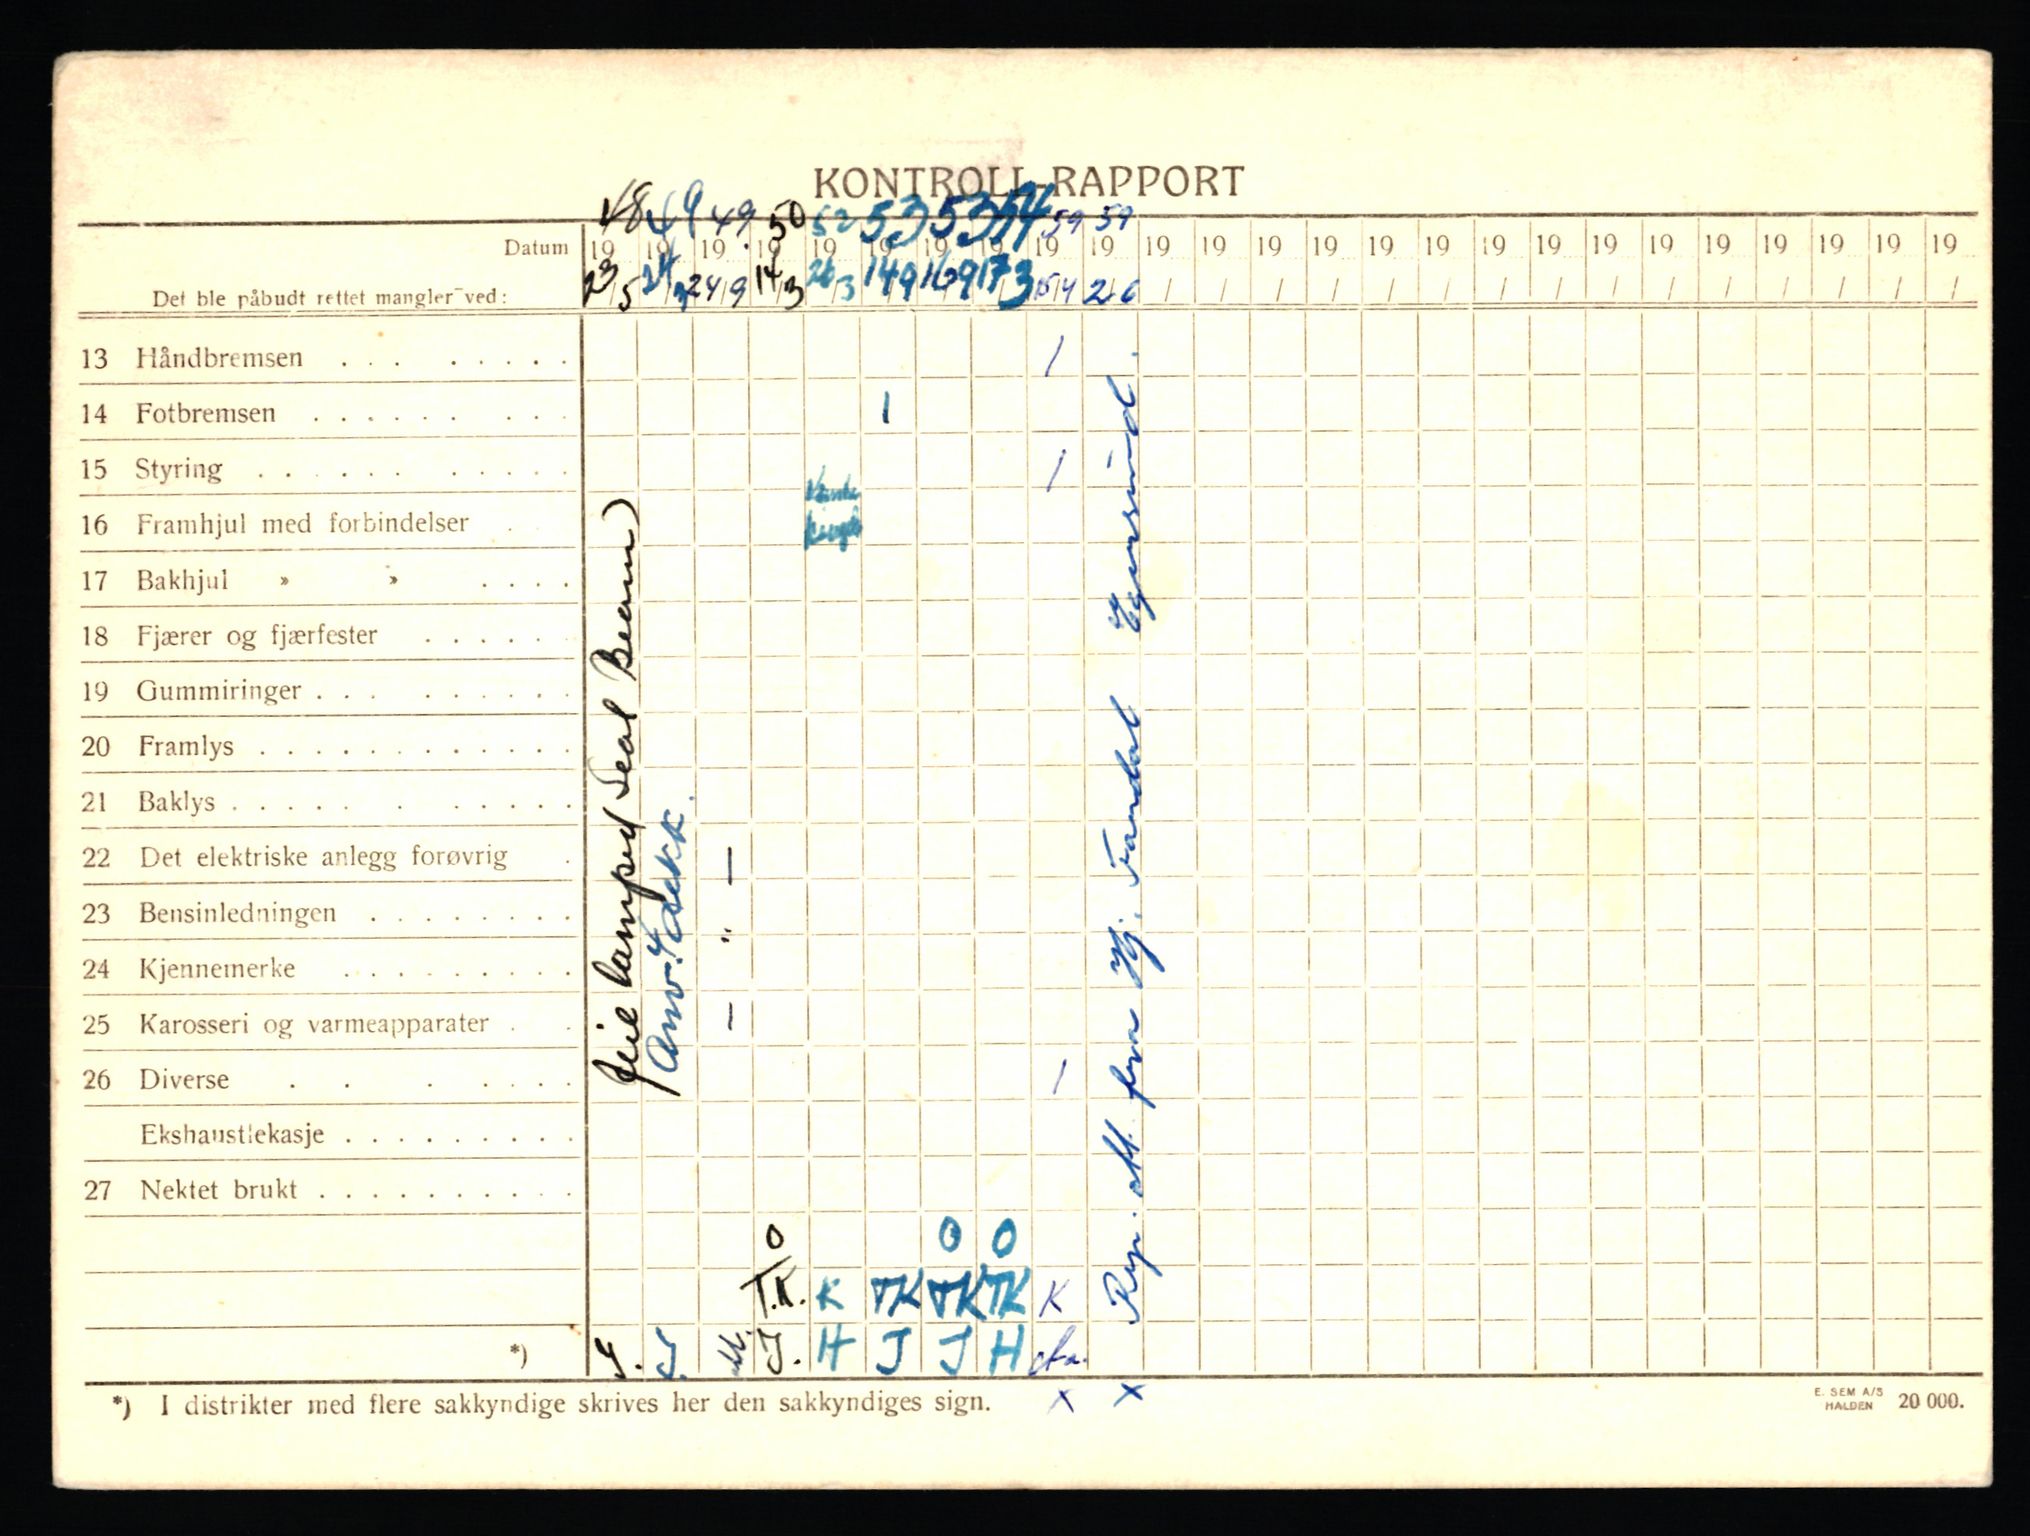 KONTROLL-RAPPORT
48 49 49 50 52 53 53 54 59 59
Datum 19 19 19 19 19 19 19 19 19 19 19 19 19 19 19 19 19 19 19 19 19 19 19 19 19
Det ble påbudt rettet mangler ved: 23/5 24/3 24/9 14/3 26/3 14/9 16/9 17/3 15/4 2/6 / / / / / / / / / / / / / / /
13 Håndbremsen . . . . . . . . /
14 Fotbremsen . . . . . . . . . 1
15 Styring . . . . . . . . . /
16 Framhjul med forbindelser .
17 Bakhjul » » . . . .
18 Fjærer og fjærfester . . . . . .
19 Gummiringer . . . . . . . . .
20 Framlys . . . . . . . . . . . .
21 Baklys . . . . . . . . . . .
22 Det elektriske anlegg forøvrig . —
23 Bensinledningen . . . . . . . . "
24 Kjennemerke . . . . . . . . .
25 Karosseri og varmeapparater . . —
26 Diverse . . . . . . . /
Ekshaustlekasje . . . . . . . . .
27 Nektet brukt . . . . . . . . . .
Feil lamper (Seal Beam)
Rep. att. fra Hj. Tandal Egersund.
0 0 0
T.K. K TK TK TK K
*) J. J. H. J. H J J H
*) I distrikter med flere sakkyndige skrives her den sakkyndiges sign. x x
E. SEM A/S
HALDEN 20 000.